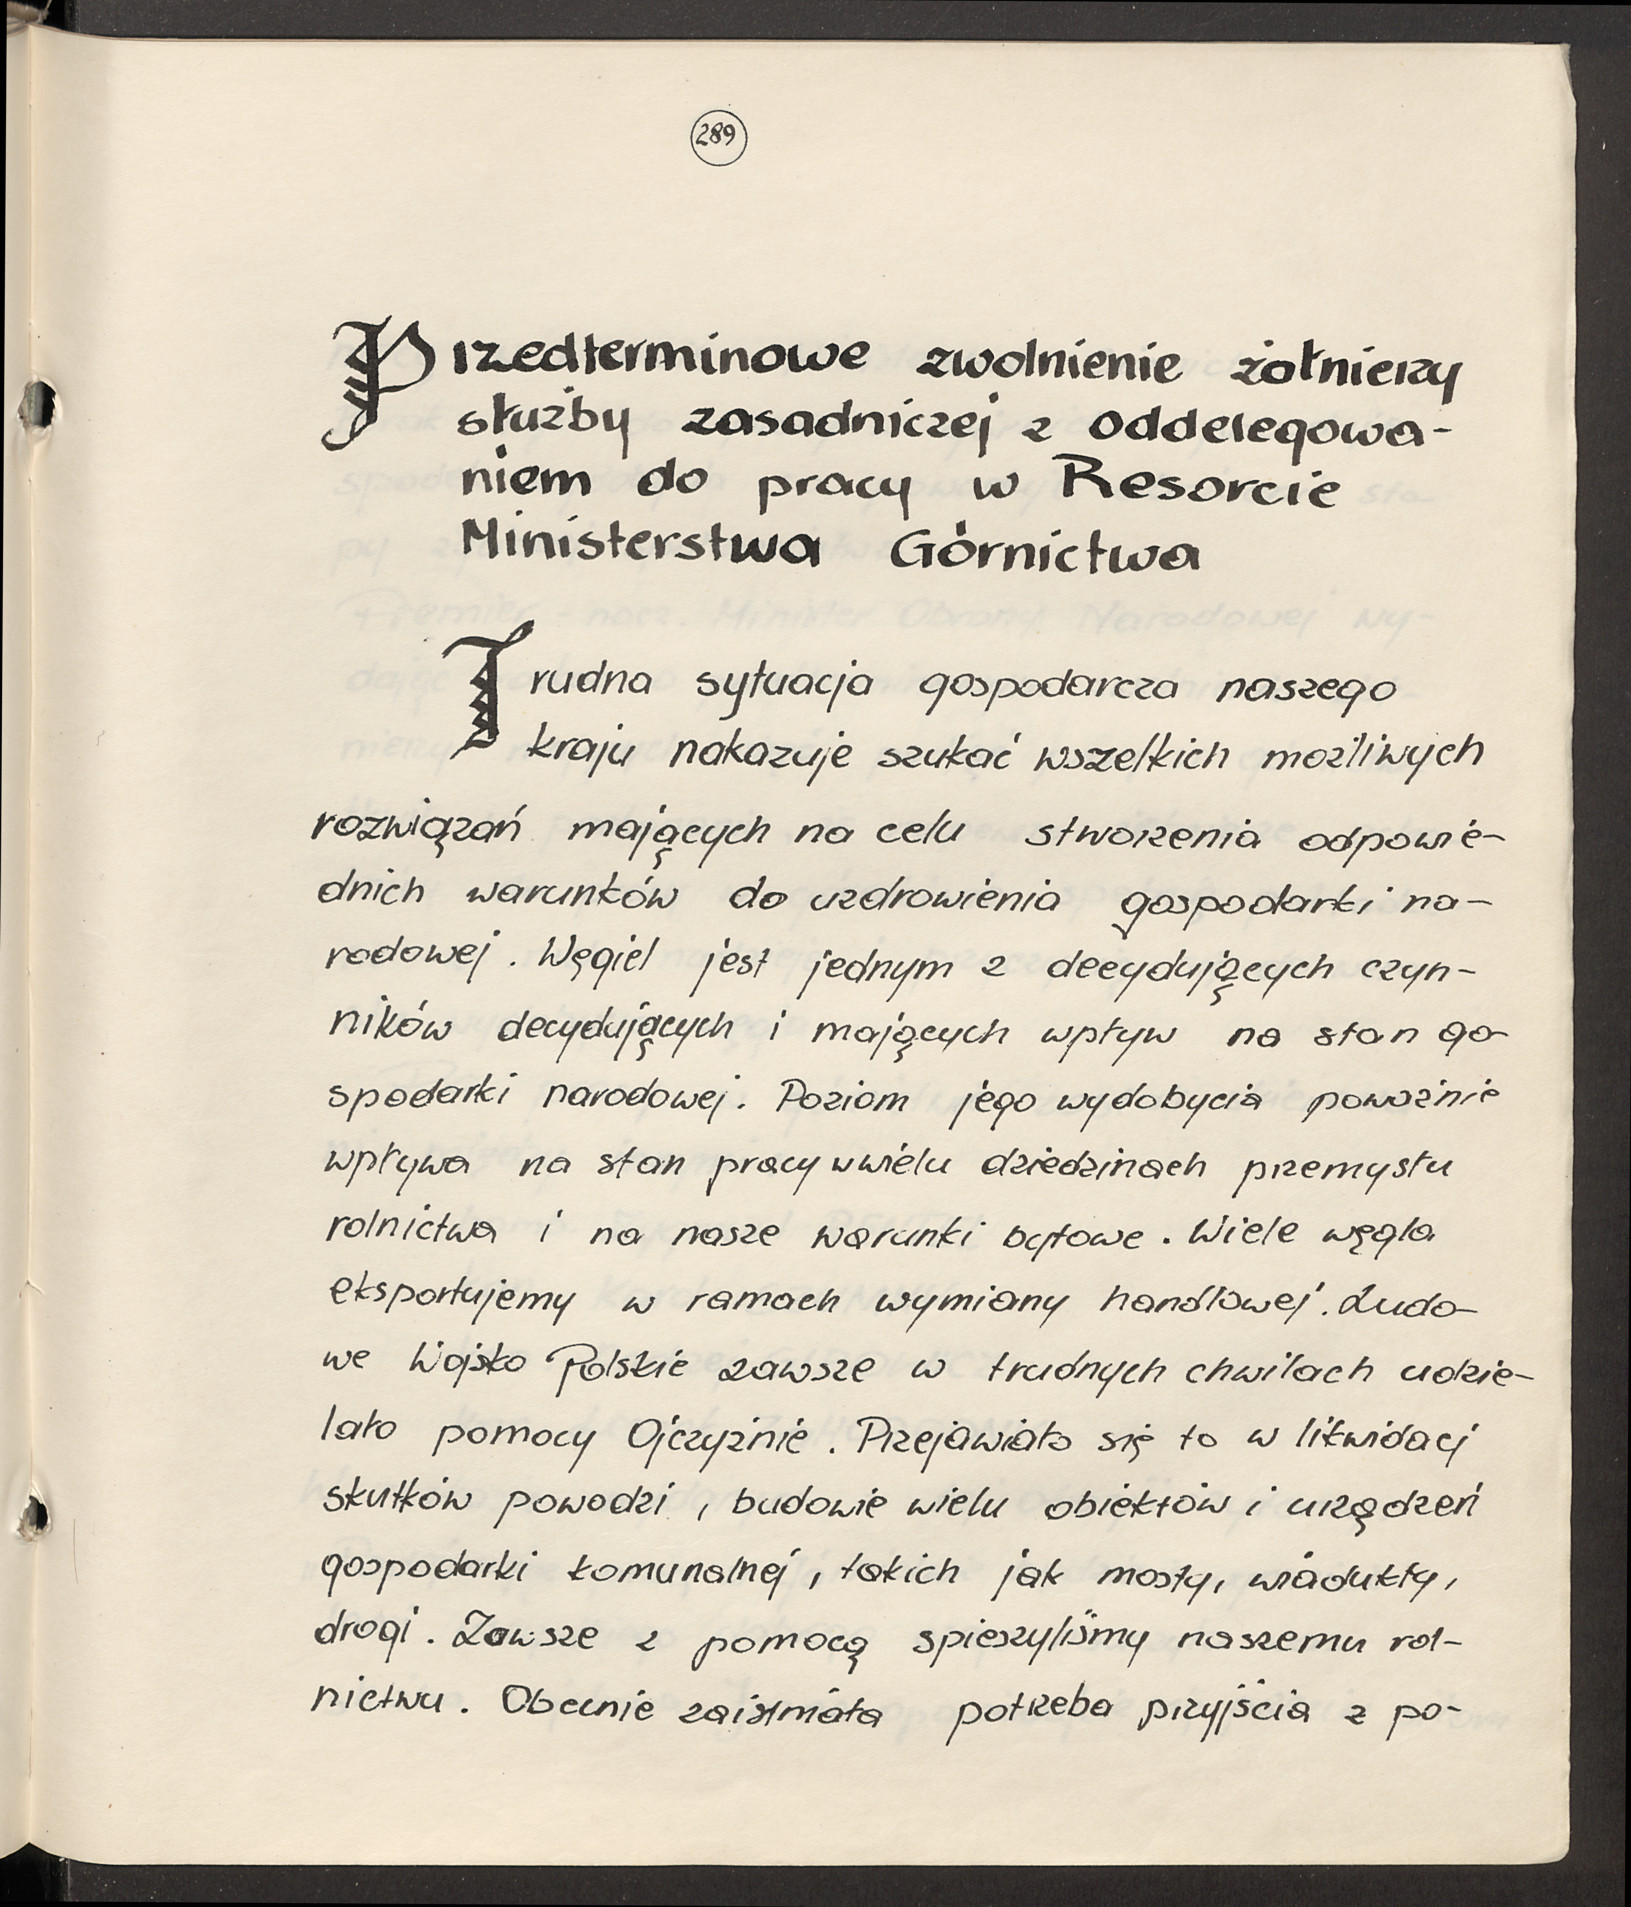 289
Przedterminowe zwolnienie żołnierzy
służby zasadniczej z oddelegowa-
niem do pracy w Resorcie
Ministerstwa Górnictwa
Trudna sytuacja gospodarcza naszego
kraju nakazuje szukać wszelkich możliwych
rozwiązań mających na celu stworzenia odpowie-
dnich warunków do uzdrowienia gospodarki na-
rodowej. Węgiel jest jednym z decydujących czyn-
ników decydujących i mających wpływ na stan go-
spodarki narodowej. Poziom jego wydobycia poważnie
wpływa na stan pracy w wielu dziedzinach przemysłu
rolnictwa i na nasze warunki bytowe. Wiele węgla
eksportujemy w ramach wymiany handlowej. Ludo-
we Wojsko Polskie zawsze w trudnych chwilach udzie-
lało pomocy Ojczyźnie. Przejawiało się to w likwidacj
skutków powodzi, budowie wielu obiektów i urządzeń
gospodarki komunalnej, takich jak mosty, wiadukty,
drogi. Zawsze z pomocą spieszyliśmy naszemu rol-
nictwu. Obecnie zaistniała potrzeba przyjścia z po-